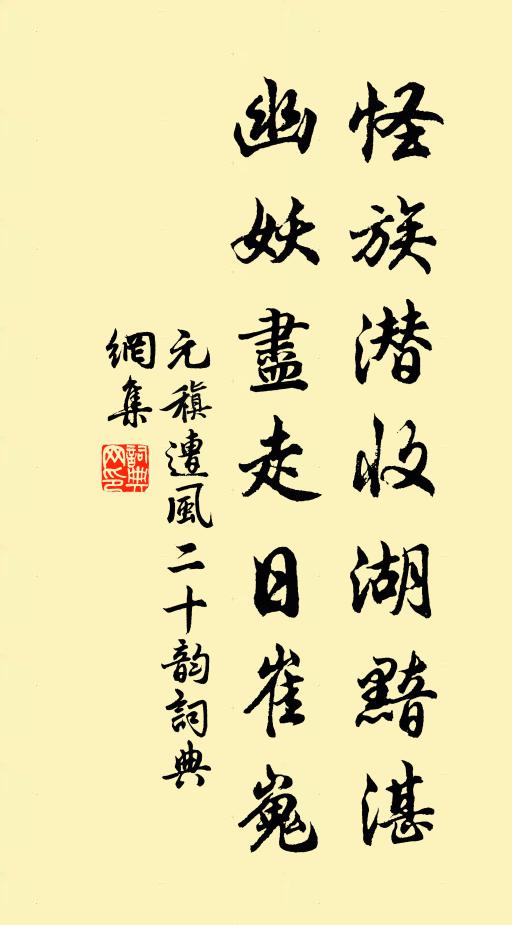 怪族潜收湖黯湛
幽妖盡走日崔嵬
元稹遭風二十韵詞典
網集
詞典網印